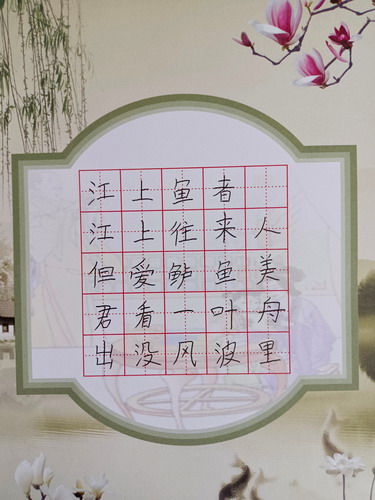 江上者
江上往来人
但爱鲈鱼美
君看一叶舟
出没风波里